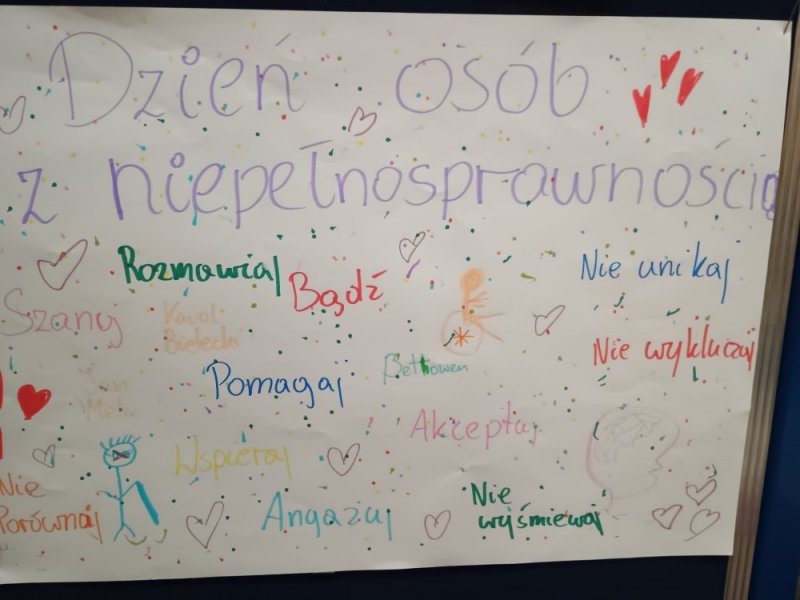 Dzień osób
z niepełnosprawnością
Rozmawiaj
Bądź
Nie unikaj
Szanuj
Karol
Bielecki
Nie wykluczaj
Jan
Mela
Pomagaj
Bethowen
Akceptuj
Wspieraj
Nie
Porównaj
Angażuj
Nie
wyśmiewaj